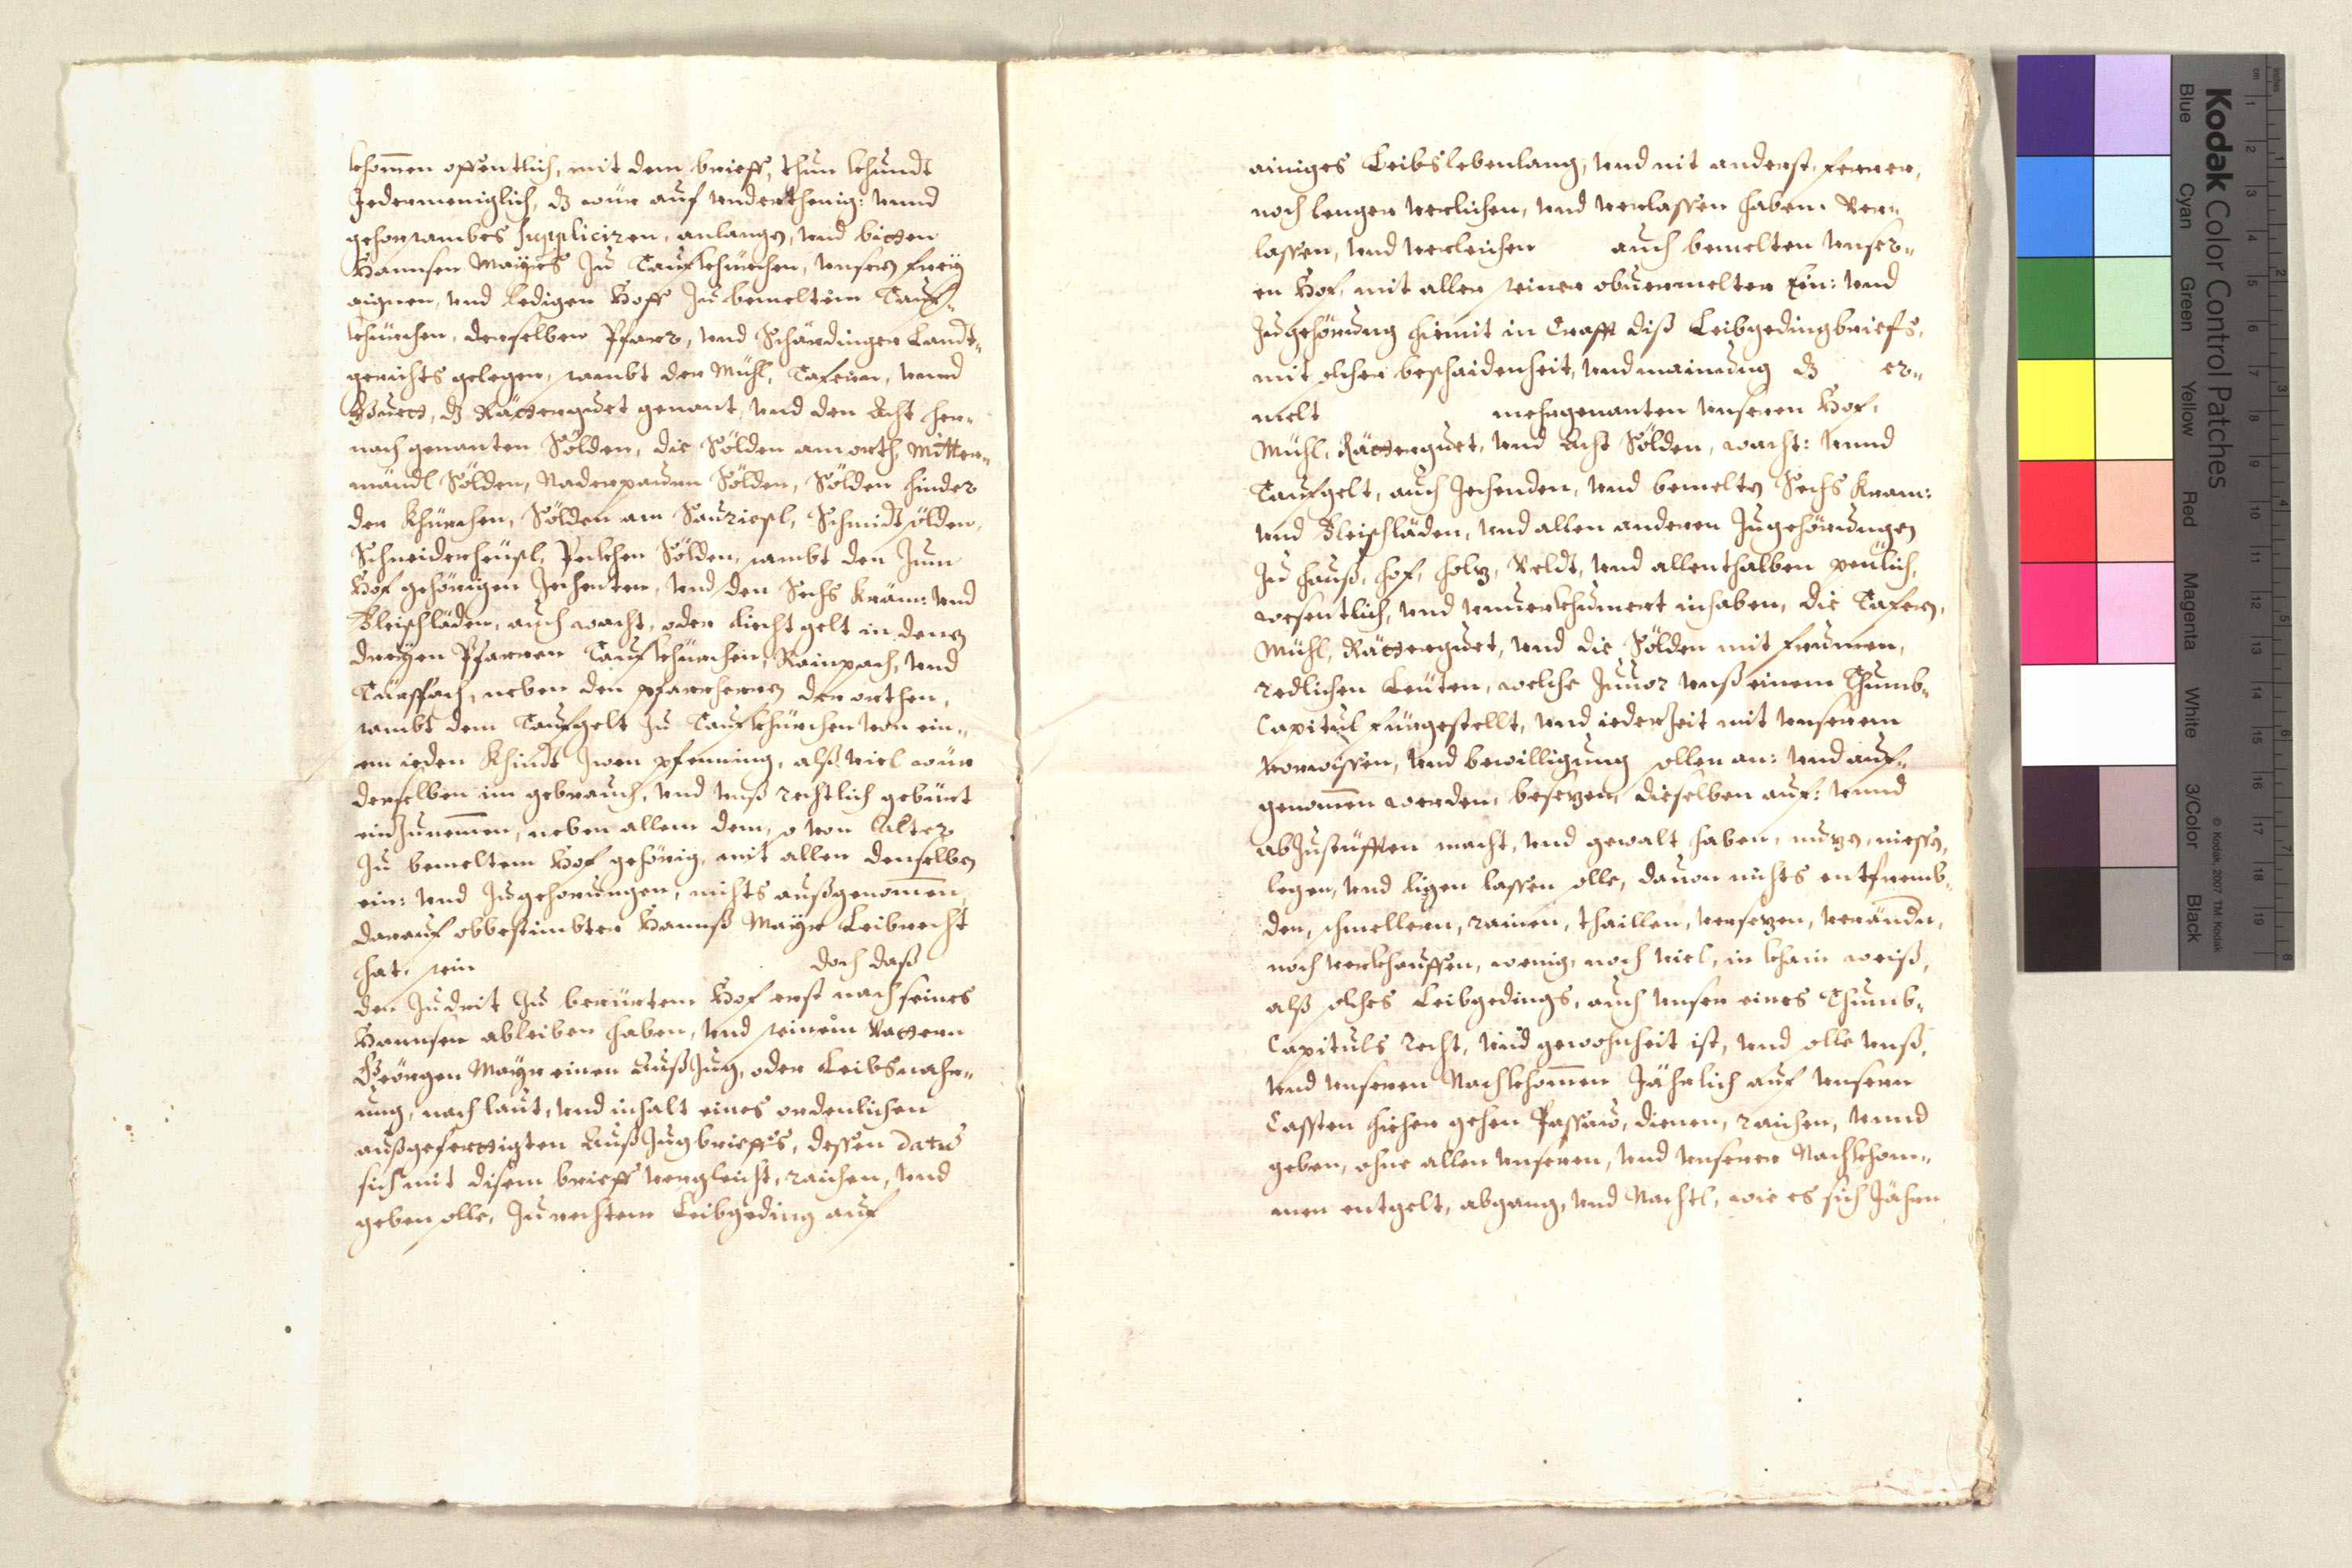 khom̄en offentlich, mit dem brieff, thun khundt
Jedermeniglich, dz wür auf underthenig: unnd
gehorsambes Suppliciren, anlangen, und bitten
Hannsen Mayrs zu Taufkhürchen, unsern frey
aignen, und ledigen Hoff zu bemeltem Tauf-
khürchen, derselben Pfarr, und Schärdinger Landt-
gerichts gelegen, sambt der Mühl, Tafern, unnd
Guett, dz Rättenguet genant, und den Acht her-
nach genanten Sölden, die Sölden am orth, Mitter-
mändl Sölden, Naderpaurn Sölden, Sölden hinder
der Khürchen, Sölden am Saurießl, Schmidtsölden,
Schneiderheüsl, Pekhen Sölden, sambt den zum
Hof gehörigen Zechenten, und den Sechs Kräm: und
Fleischläden, auch wacht, oder liecht gelt in denen
dreyen Pfarren Taufkhürchen, Rainpach, und
Täuffach, neben den pfarrherrn der orthen,
sambt dem Taufgelt zu Taufkhürchen von ein-
em ieden Khindt zwen pfenning, alß viel wür
derselben im gebrauch, und unß rechtlich gebürt
einzunem̄en, neben allem dem, so von Alter
zu bemeltem Hof gehörig, mit allen denselben
ein: und zugehorungen, nichts außgenom̄en,
darauf obbestimbter Hannß Mayr Leibrecht
hat, sein doch daß
der zu drit zu berürtem Hof erst nach seines
Hannsen ableiben haben, und seinem Vattern
Geörgen Mayr einen Außzug, oder Leibsnahr-
ung, nach laut, und inhalt eines ordenlichen
außgefertigten Außzugbrieffs, dessen datus
sich mit disem brieff vergleicht, raichen, und
geben solle, zu rechtem Leibgeding auf
ainiges Leibslebenlang, und nit anderst, ferrer,
noch lenger verlichen, und verlassen haben. Ver-
lassen, und verleichen auch bemelten unser-
en Hof, mit aller seiner obuermelter Ein: und
zugehörung hiemit in Crafft diß Leibgedingbriefs,
mit solcher bescheidenheit, und mainung dz er-
melt mehrgenanten unseren Hof,
Mühl, Rättenguet, und Acht Sölden, wacht: unnd
Taufgelt, auch Zechenden, und bemelte Sechs Kram:
und Fleischläden, und allen anderen zugehörungen
zu hauß, hof, holz, Veldt, und allenthalben peülich,
wesentlich, und unuerkhumert inhaben, die Tafern,
Mühl, Rättenguet, und die Sölden mit frumen,
redlichen Leüten, welche zuuor unß einem Thumb-
Capitul fürgestellt, und iederzeit mit unserem
vorwissen, und bewilligung sollen an: und auf-
genom̄en werden, besezen, dieselben auf: unnd
abzustüfften macht, und gewalt haben, nuzen, niessen,
legen, und ligen lassen solle, dauon nichts entfremb-
den, schmellern, rainen, thaillen, versezen, verändern,
noch verkhauffen, wenig, noch viel, in khain weiß,
alß solches Leibgedings, auch unser eines Thumb-
Capituls recht, und gewohnheit ist, und solle unß,
und unseren Nachkhom̄en Jährlich auf unsern
Cassten hieher gehen Passaw, dienen, raichen, unnd
geben, ohne allen unseren, und unserer Nachkhom-
men entgelt, abgang, und Nachtl, wie es sich Jähren